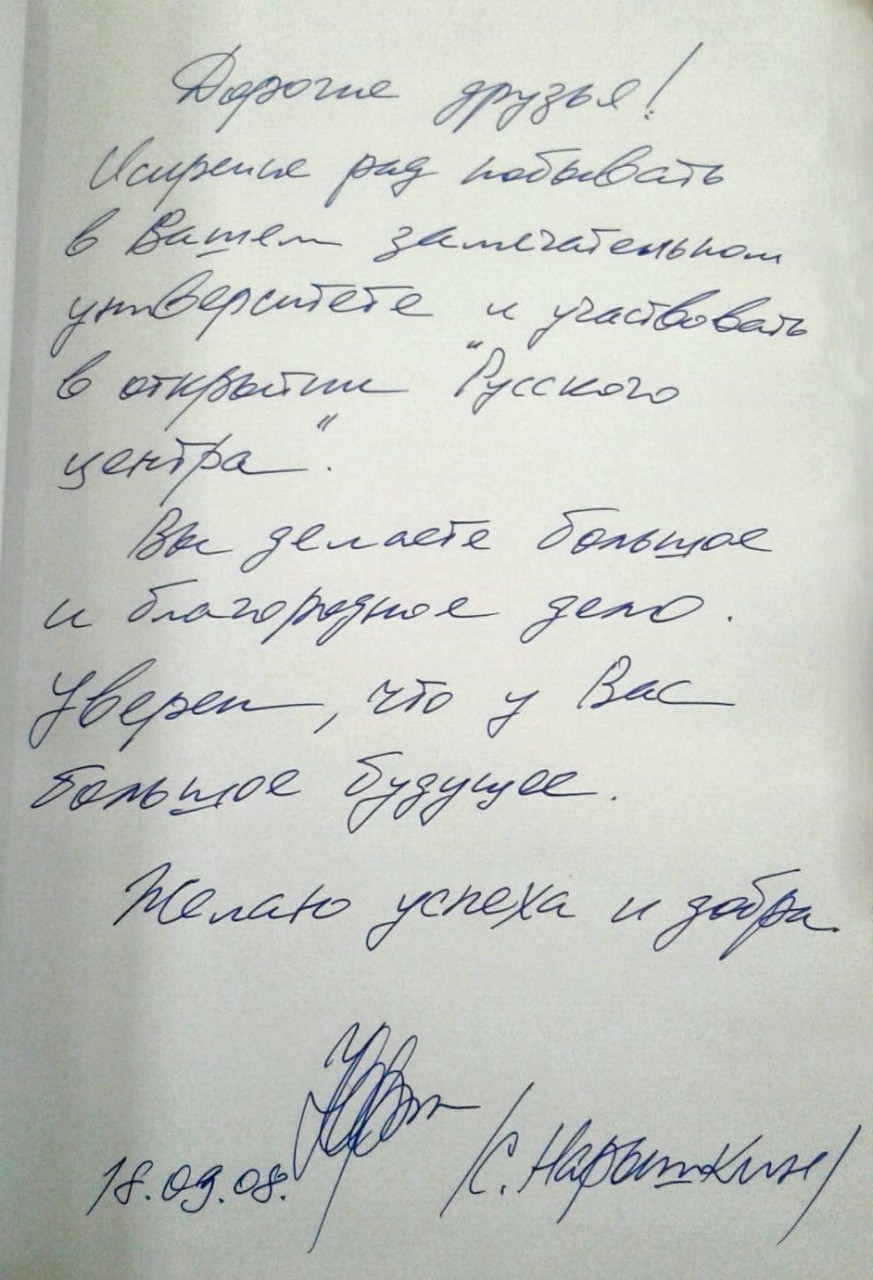 Дорогие друзья!
Искренне рад побывать
в Вашем замечательном
университете и участвовать
в открытии "Русского
центра".
Вы делаете большое
и благородное дело.
Уверен, что у Вас
большое будущее.
Желаю успеха и добра.
18.09.08.
/С. Нарышкин/